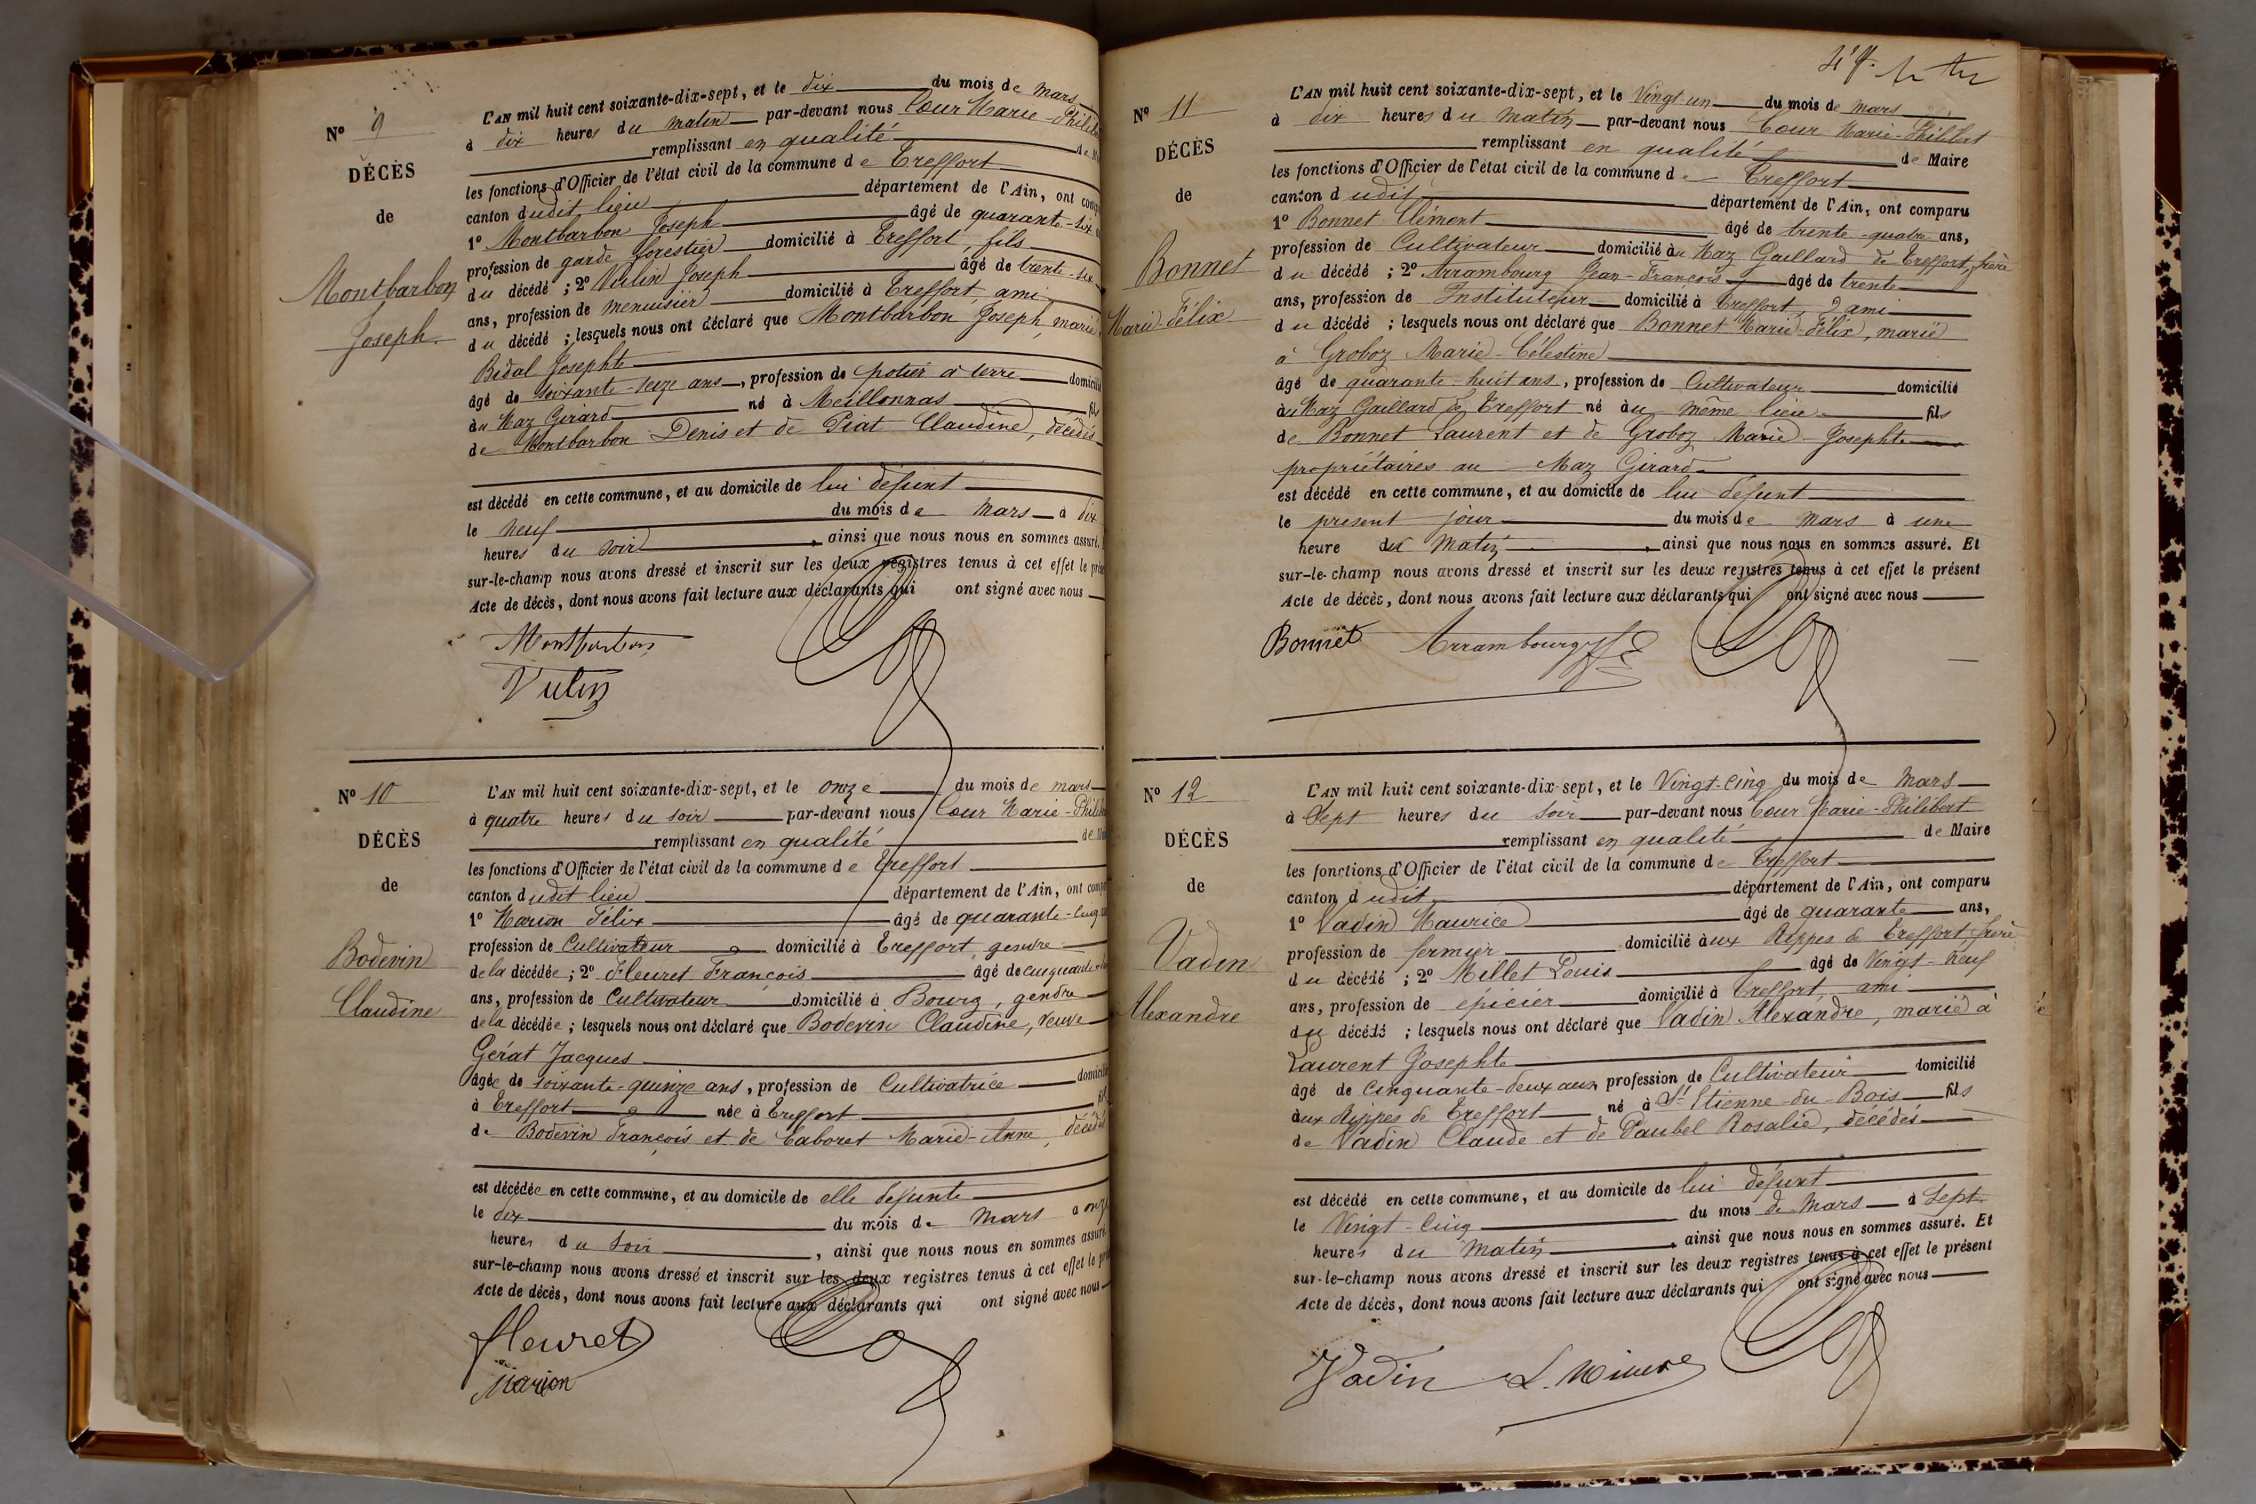 Nº 9
DÉCÈS
de
Montbarbon
Joseph.
L'AN mil huit cent soixante-dix-sept, et le dix du mois de mars
à dix heures du matin par-devant nous Cœur Marie-Philib
remplissant en qualité de M
les fonctions d'Officier de l'état civil de la commune de Treffort
canton dudit lieu département de l'Ain, ont comp
1º Montbarbon Joseph âgé de quarante-six
profession de garde forestier domicilié à Treffort, fils
du décédé ; 2º Vulin Joseph âgé de trente-six
ans, profession de menuisier domicilié à Treffort, ami
du décédé ; lesquels nous ont déclaré que Montbarbon Joseph, marié
Bidal Josephte
âgé de soixante-seize ans, profession de potier à terre domicilié
au Maz Girard né à Meillonnas fils
de Montbarbon Denis et de Piat Claudine, décédés
est décédé en cette commune, et au domicile de lui défunt
le neuf du mois de mars à dix
heures du soir, ainsi que nous nous en sommes assuré.
sur-le-champ nous avons dressé et inscrit sur les deux registres tenus à cet effet le prés
Acte de décès, dont nous avons fait lecture aux déclarants qui ont signé avec nous
Montbarbon
Vulin
Nº 10
DÉCÈS
de
Bodevin
Claudine
L'AN mil huit cent soixante-dix-sept, et le onze du mois de mars
à quatre heures du soir par-devant nous Cœur Marie-Philib
remplissant en qualité de M
les fonctions d'Officier de l'état civil de la commune de Treffort
canton dudit lieu département de l'Ain, ont comp
1º Marion Félix âgé de quarante-cinq
profession de Cultivateur domicilié à Treffort, gendre
de la décédée ; 2º Fleuret François âgé de cinquante
ans, profession de Cultivateur domicilié à Bourg, gendre
de la décédée ; lesquels nous ont déclaré que Bodevin Claudine, veuve
Gérat Jacques
âgée de soixante-quinze ans, profession de Cultivatrice domicilié
à Treffort née à Treffort fil
de Bodevin François et de Caboret Marie-Anne, décédés
est décédée en cette commune, et au domicile de elle défunte
le dix du mois de mars à onze
heures du soir, ainsi que nous nous en sommes assuré.
sur-le-champ nous avons dressé et inscrit sur les deux registres tenus à cet effet le pré
Acte de décès, dont nous avons fait lecture aux déclarants qui ont signé avec nous
fleuret
Marion
Nº 11
DÉCÈS
de
Bonnet
Marie Félix
L'AN mil huit cent soixante-dix-sept, et le Vingt-un du mois de mars
à dix heures du matin par-devant nous Cœur Marie-Philibert
remplissant en qualité de Maire
les fonctions d'Officier de l'état civil de la commune de Treffort
canton dudit département de l'Ain, ont comparu
1º Bonnet Clément âgé de trente-quatre ans,
profession de Cultivateur domicilié au Maz Gaillard de Treffort, frère
du décédé ; 2º Arrambourg Jean-François âgé de trente
ans, profession de Instituteur domicilié à Treffort, ami
du décédé ; lesquels nous ont déclaré que Bonnet Marie-Félix, marié
à Groboz Marie-Célestine
âgé de quarante-huit ans, profession de Cultivateur domicilié
au Maz Gaillard de Treffort né au même lieu fils
de Bonnet Laurent et de Groboz Marie-Josephte
propriétaires au Maz Girard
est décédé en cette commune, et au domicile de lui défunt
le présent jour du mois de mars à une
heure du matin, ainsi que nous nous en sommes assuré. Et
sur-le-champ nous avons dressé et inscrit sur les deux registres tenus à cet effet le présent
Acte de décès, dont nous avons fait lecture aux déclarants qui ont signé avec nous
Bonnet Arrambourg
Nº 12
DÉCÈS
de
Vadin
Alexandre
L'AN mil huit cent soixante-dix-sept, et le Vingt-cinq du mois de mars
à Sept heures du soir par-devant nous Cœur Marie-Philibert
remplissant en qualité de Maire
les fonctions d'Officier de l'état civil de la commune de Treffort
canton dudit département de l'Ain, ont comparu
1º Vadin Maurice âgé de quarante ans,
profession de fermier domicilié aux Rippes de Treffort, frère
du décédé ; 2º Millet Louis âgé de Vingt-neuf
ans, profession de épicier domicilié à Treffort, ami
du décédé ; lesquels nous ont déclaré que Vadin Alexandre, marié à
Laurent Josephte
âgé de cinquante-deux ans, profession de Cultivateur domicilié
aux Rippes de Treffort né à St Etienne-du-Bois fils
de Vadin Claude et de Paubel Rosalie, décédés
est décédé en cette commune, et au domicile de lui défunt
le Vingt-cinq du mois de Mars à Sept
heures du matin, ainsi que nous nous en sommes assuré. Et
sur-le-champ nous avons dressé et inscrit sur les deux registres tenus à cet effet le présent
Acte de décès, dont nous avons fait lecture aux déclarants qui ont signé avec nous
Vadin